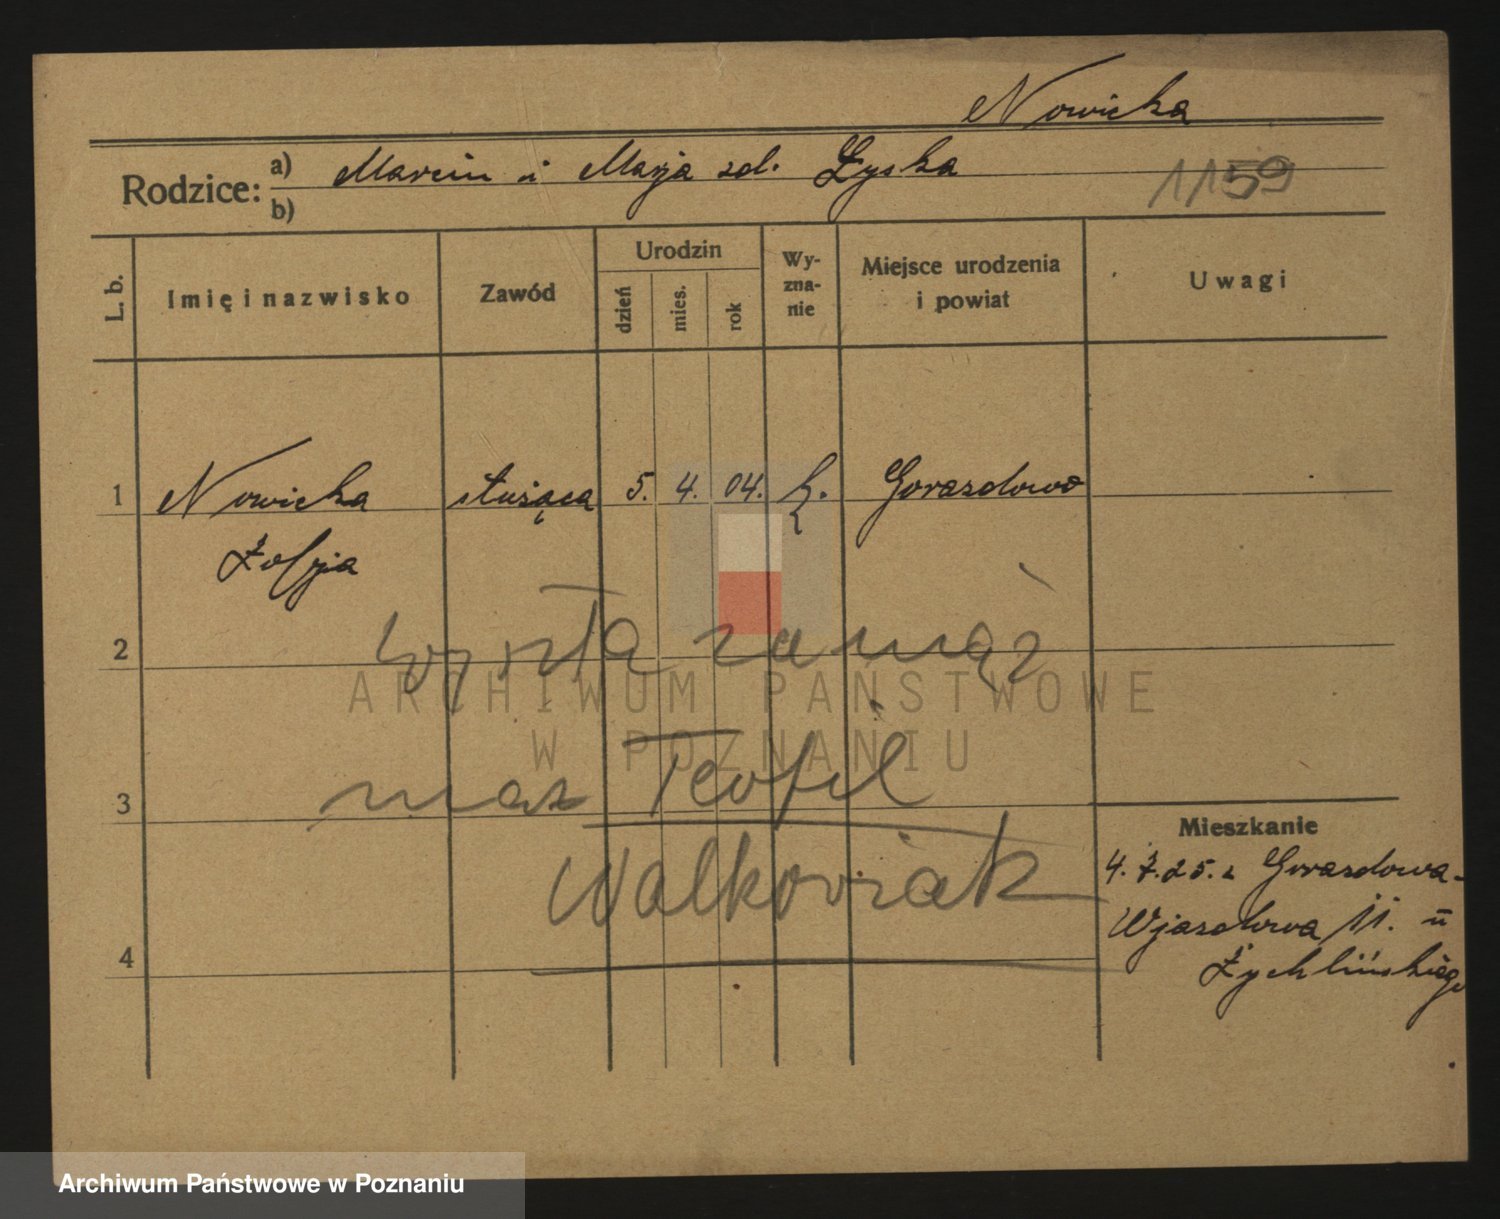 Nowicka
Rodzice: a) Marcin i Marja zd. Zyska
b)
1159
L. b.
Imię i nazwisko
Zawód
Urodzin
dzień
mies.
rok
Wy-
zna-
nie
Miejsce urodzenia
i powiat
Uwagi
1 Nowicka służąca 5. 4. 04. k. Gorazdowo
Zofja
wyszła za mąż
2
ARCHIWUM PAŃSTWOWE
W POZNANIU
3 mąż Teofil
Walkowiak
4
Mieszkanie
4.7.25. z Gorazdowa-
Wjazdowa 11. u
Żychlińskiego
Archiwum Państwowe w Poznaniu